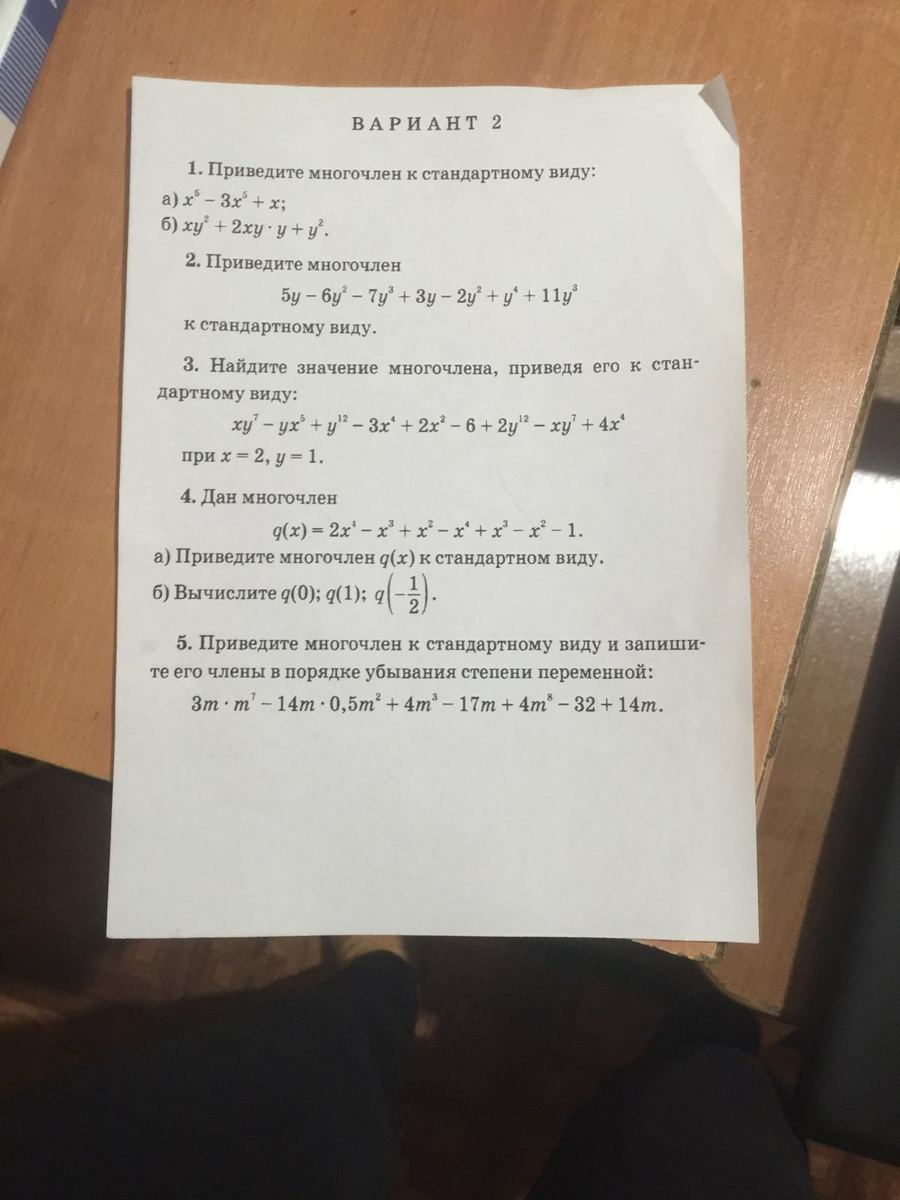 ВАРИАНТ 2
1. Приведите многочлен к стандартному виду:
а) x⁵ − 3x⁵ + x;
б) xy² + 2xy · y + y².
2. Приведите многочлен
5y − 6y² − 7y³ + 3y − 2y² + y⁴ + 11y³
к стандартному виду.
3. Найдите значение многочлена, приведя его к стан-
дартному виду:
xy⁷ − yx⁵ + y¹² − 3x⁴ + 2x² − 6 + 2y¹² − xy⁷ + 4x⁴
при x = 2, y = 1.
4. Дан многочлен
q(x) = 2x⁴ − x³ + x² − x⁴ + x³ − x² − 1.
а) Приведите многочлен q(x) к стандартном виду.
б) Вычислите q(0); q(1); q(−1/2).
5. Приведите многочлен к стандартному виду и запиши-
те его члены в порядке убывания степени переменной:
3m · m⁷ − 14m · 0,5m² + 4m³ − 17m + 4m⁸ − 32 + 14m.